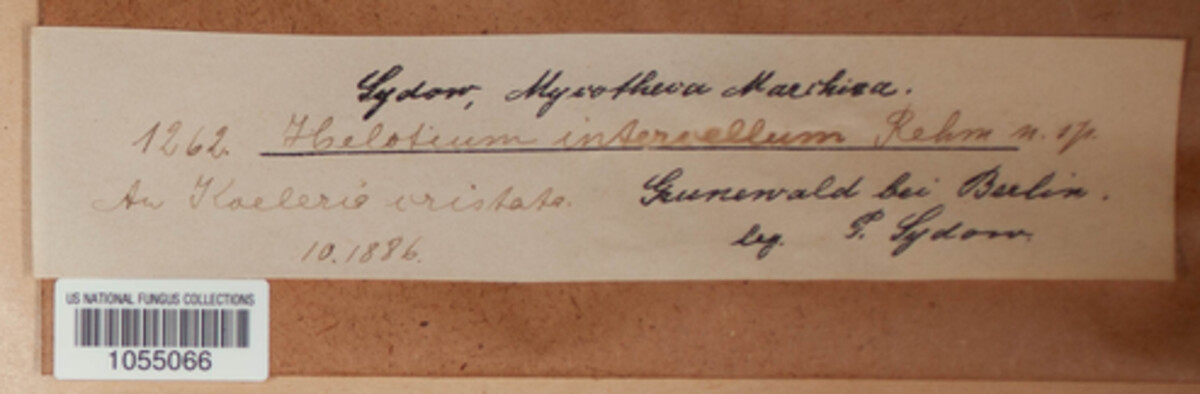 Sydow, Mycotheca Marchica.
1262. Helotium intervellum Rehm n. sp.
An Koeleria cristata. Grunewald bei Berlin.
10.1886. leg. P. Sydow.
US NATIONAL FUNGUS COLLECTIONS
1055066